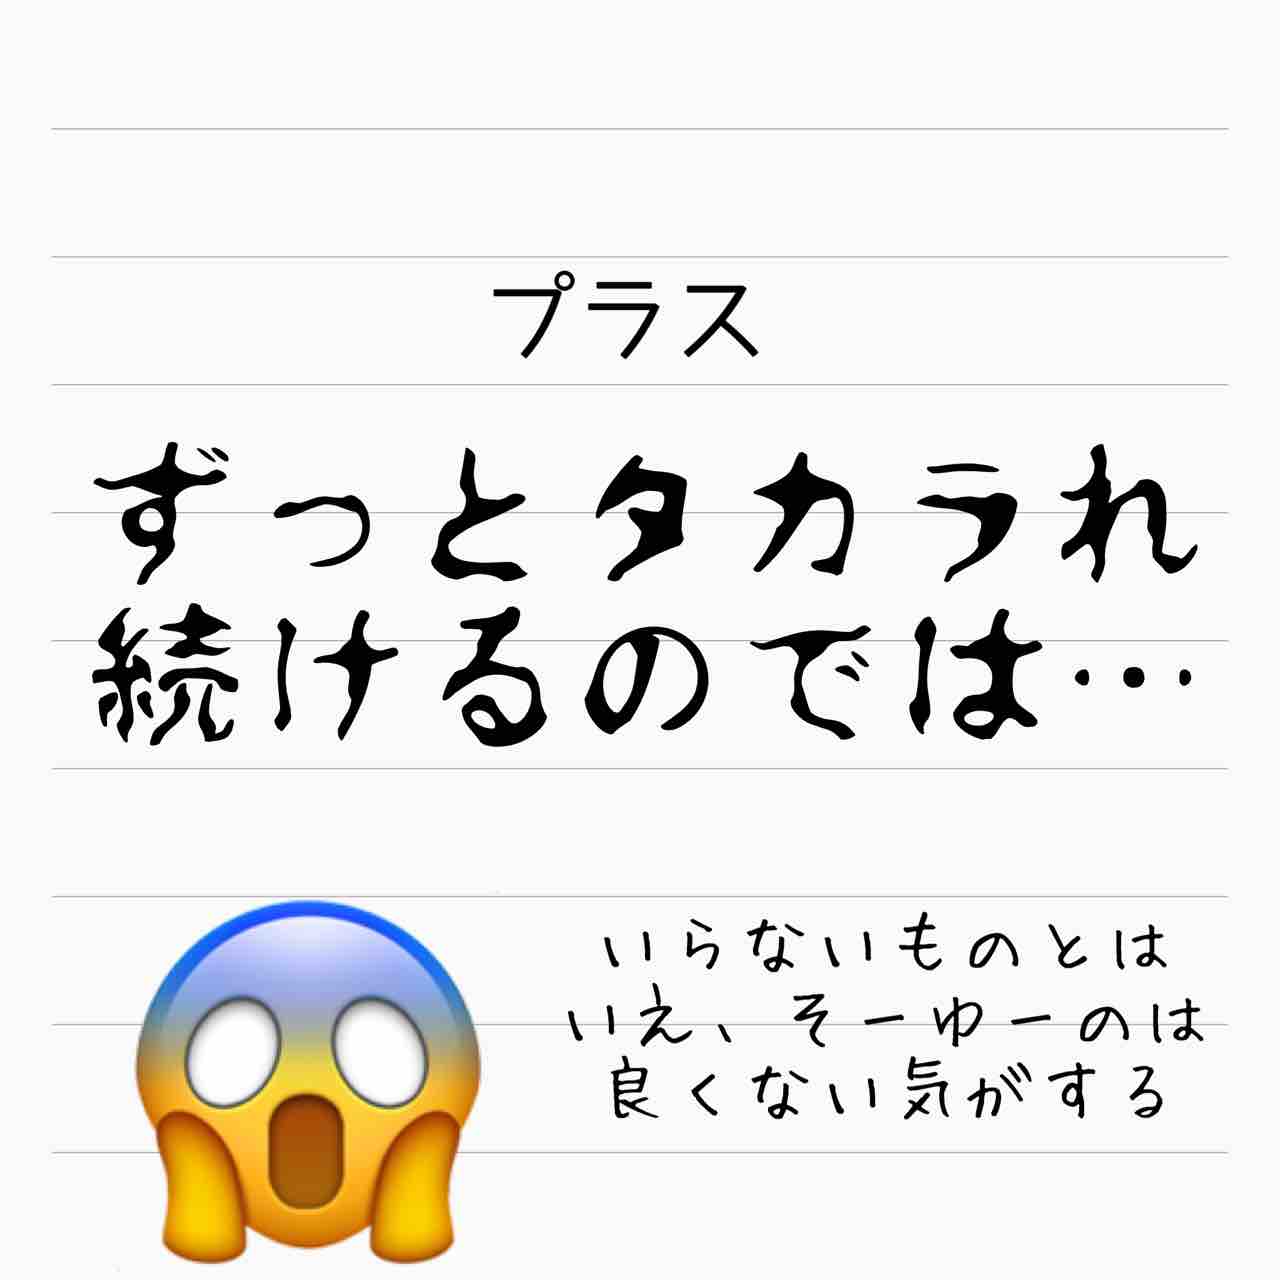 プラス
ずっとタカラれ
続けるのでは…
いらないものとは
いえ、そーゆーのは
良くない気がする